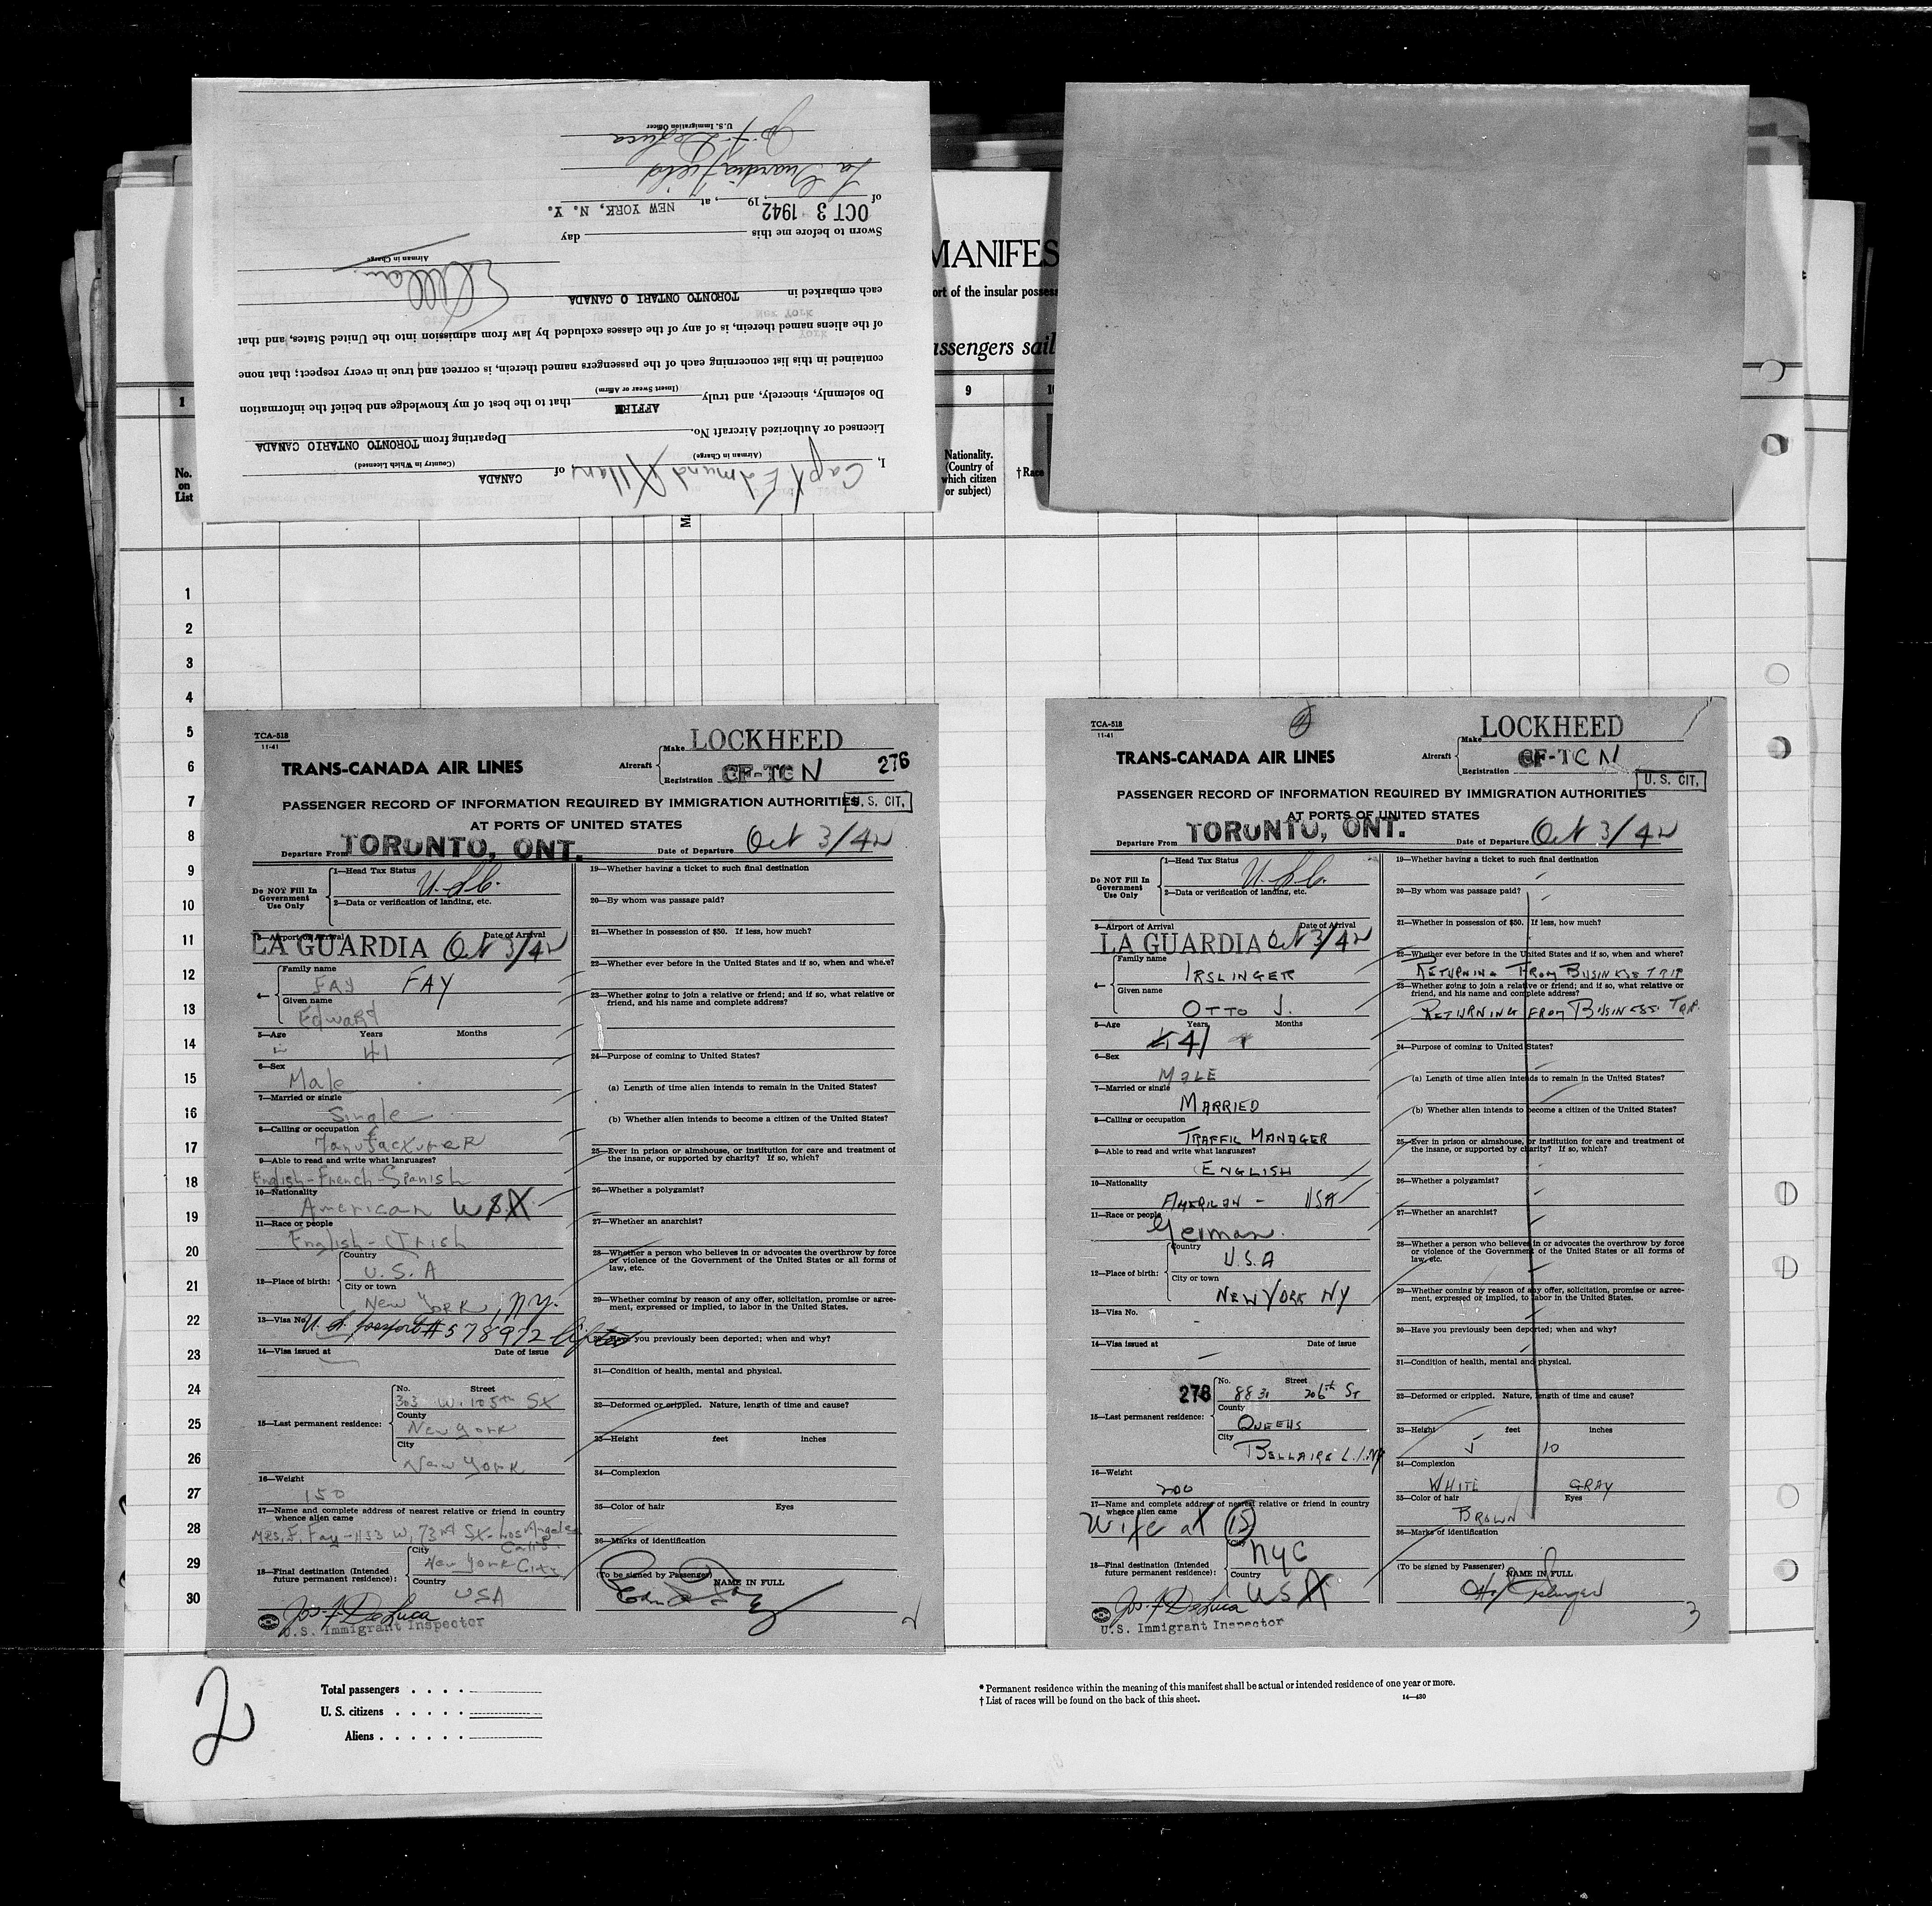 I, Capt Edmund Allan of CANADA
(Airman in Charge) (Country in Which Licensed)
Licensed or Authorized Aircraft No. Departing from TORONTO ONTARIO CANADA
Do solemnly, sincerely, and truly AFFIRM that to the best of my knowledge and belief the information
(Insert Swear or Affirm)
contained in this list concerning each of the passengers named therein, is correct and true in every respect; that none
of the aliens named therein, is of any of the classes excluded by law from admission into the United States, and that
each embarked in TORONTO ONTARI O CANADA
Airman in Charge
Sworn to before me this day
OCT 3 1942
of , 19 , at NEW YORK, N. Y.
La Guardia Field
U. S. Immigration Officer
MANIFES
ort of the insular possess
assengers sail
1
9
No.
on
List
Nationality.
(Country of
which citizen
or subject)
†Race
1
2
3
4
5
6
7
8
9
10
11
12
13
14
15
16
17
18
19
20
21
22
23
24
25
26
27
28
29
30
TCA-518
11-41
TRANS-CANADA AIR LINES
Aircraft
Make LOCKHEED
Registration CF-TC N
276
PASSENGER RECORD OF INFORMATION REQUIRED BY IMMIGRATION AUTHORITIES
U. S. CIT.
AT PORTS OF UNITED STATES
Departure From TORONTO, ONT.
Date of Departure Oct 3/42
Do NOT Fill In
Government
Use Only
1—Head Tax Status
U.S.C.
2—Data or verification of landing, etc.
3—Airport of Arrival Date of Arrival
LA GUARDIA Oct 3/42
4—
Family name
FAY FAY
Given name
Edward
5—Age Years Months
41
6—Sex
Male
7—Married or single
Single
8—Calling or occupation
Manufacturer
9—Able to read and write what languages?
English-French-Spanish
10—Nationality
American USA
11—Race or people
English-Irish
12—Place of birth:
Country
U.S.A
City or town
New York, N.Y.
13—Visa No.
U.S. passport #578972 lifted
14—Visa issued at Date of issue
15—Last permanent residence:
No. Street
303 W. 105th St
County
New York
City
New York
16—Weight
150
17—Name and complete address of nearest relative or friend in country
whence alien came
Mrs. F. Fay-1133 W. 73rd St-Los Angeles
Calif.
18—Final destination (Intended
future permanent residence):
City
New York City
Country
USA
Jos. F. DeLuca
U.S. Immigrant Inspector
19—Whether having a ticket to such final destination
20—By whom was passage paid?
21—Whether in possession of $50. If less, how much?
22—Whether ever before in the United States and if so, when and where?
23—Whether going to join a relative or friend; and if so, what relative or
friend, and his name and complete address?
24—Purpose of coming to United States?
(a) Length of time alien intends to remain in the United States?
(b) Whether alien intends to become a citizen of the United States?
25—Ever in prison or almshouse, or institution for care and treatment of
the insane, or supported by charity? If so, which?
26—Whether a polygamist?
27—Whether an anarchist?
28—Whether a person who believes in or advocates the overthrow by force
or violence of the Government of the United States or all forms of
law, etc.
29—Whether coming by reason of any offer, solicitation, promise or agree-
ment, expressed or implied, to labor in the United States.
30—Have you previously been deported; when and why?
31—Condition of health, mental and physical.
32—Deformed or crippled. Nature, length of time and cause?
33—Height feet inches
34—Complexion
35—Color of hair Eyes
36—Marks of identification
(To be signed by Passenger)
NAME IN FULL
2
TCA-518
11-41
TRANS-CANADA AIR LINES
Aircraft
Make LOCKHEED
Registration CF-TC N
U. S. CIT.
PASSENGER RECORD OF INFORMATION REQUIRED BY IMMIGRATION AUTHORITIES
AT PORTS OF UNITED STATES
Departure From TORONTO, ONT.
Date of Departure Oct 3/42
Do NOT Fill In
Government
Use Only
1—Head Tax Status
U.S.C.
2—Data or verification of landing, etc.
3—Airport of Arrival Date of Arrival
LA GUARDIA Oct 3/42
4—
Family name
IRSLINGER
Given name
OTTO J.
5—Age Years Months
41
6—Sex
MALE
7—Married or single
MARRIED
8—Calling or occupation
TRAFFIC MANAGER
9—Able to read and write what languages?
ENGLISH
10—Nationality
AMERICAN - USA
11—Race or people
German.
12—Place of birth:
Country
U.S.A
City or town
NEW YORK NY
13—Visa No.
14—Visa issued at Date of issue
276
15—Last permanent residence:
No. Street
88 31 206th ST
County
QUEENS
City
BELLAIRE L.I. NY
16—Weight
200
17—Name and complete address of nearest relative or friend in country
whence alien came
Wife at (15)
18—Final destination (Intended
future permanent residence):
NYC
Country
USA
Jos. F. DeLuca
U.S. Immigrant Inspector
19—Whether having a ticket to such final destination
20—By whom was passage paid?
21—Whether in possession of $50. If less, how much?
22—Whether ever before in the United States and if so, when and where?
RETURNING FROM BUSINESS TRIP
23—Whether going to join a relative or friend; and if so, what relative or
friend, and his name and complete address?
RETURNING FROM BUSINESS TRIP.
24—Purpose of coming to United States?
(a) Length of time alien intends to remain in the United States?
(b) Whether alien intends to become a citizen of the United States?
25—Ever in prison or almshouse, or institution for care and treatment of
the insane, or supported by charity? If so, which?
26—Whether a polygamist?
27—Whether an anarchist?
28—Whether a person who believes in or advocates the overthrow by force
or violence of the Government of the United States or all forms of
law, etc.
29—Whether coming by reason of any offer, solicitation, promise or agree-
ment, expressed or implied, to labor in the United States.
30—Have you previously been deported; when and why?
31—Condition of health, mental and physical.
32—Deformed or crippled. Nature, length of time and cause?
33—Height feet inches
5 10
34—Complexion
WHITE GRAY
35—Color of hair Eyes
BROWN
36—Marks of identification
(To be signed by Passenger)
NAME IN FULL
3
2
Total passengers . . . .
U. S. citizens . . . . .
Aliens . . . . . .
* Permanent residence within the meaning of this manifest shall be actual or intended residence of one year or more.
† List of races will be found on the back of this sheet.
14—430